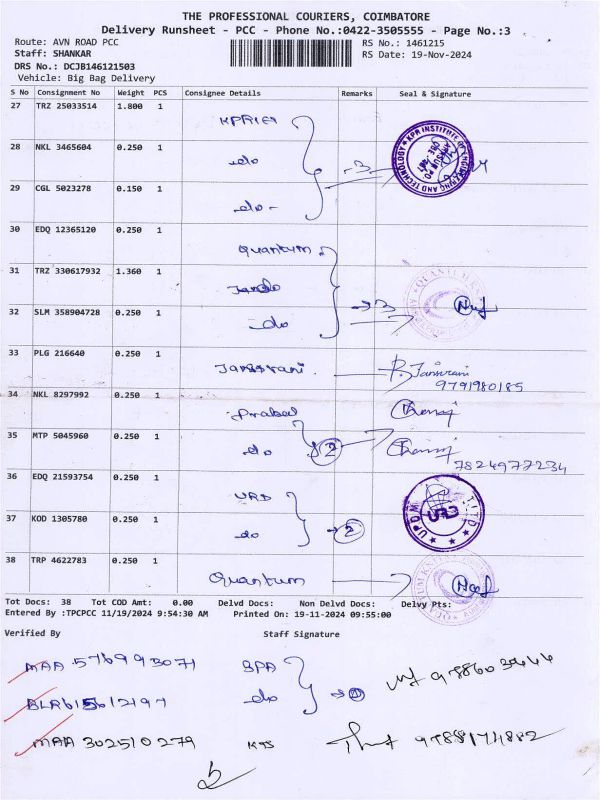 THE PROFESSIONAL COURIERS, COIMBATORE
Delivery Runsheet - PCC - Phone No.:0422-3505555 - Page No.:3
Route: AVN ROAD PCC RS No.: 1461215
Staff: SHANKAR RS Date: 19-Nov-2024
DRS No.: DCJB146121503
Vehicle: Big Bag Delivery
S No Consignment No Weight PCS Consignee Details Remarks Seal & Signature
27 TRZ 25033514 1.800 1
28 NKL 3465604 0.250 1 do
29 CGL 5023278 0.150 1 do
30 EDQ 12365120 0.250 1 Quantum
31 TRZ 330617932 1.360 1 do
32 SLM 358904728 0.250 1 do
33 PLG 216640 0.250 1 Jansirani
9791980185
34 NKL 8297992 0.250 1
35 MTP 5045960 0.250 1 do 2
7824977234
36 EDQ 21593754 0.250 1 URD
37 KOD 1305780 0.250 1 do 2 URD
38 TRP 4622783 0.250 1 Quantum
Tot Docs: 38 Tot COD Amt: 0.00 Delvd Docs: Non Delvd Docs: Delvy Pts:
Entered By :TPCPCC 11/19/2024 9:54:30 AM Printed On: 19-11-2024 09:55:00
Verified By Staff Signature
MAA 576993071
do
MAA 302510279